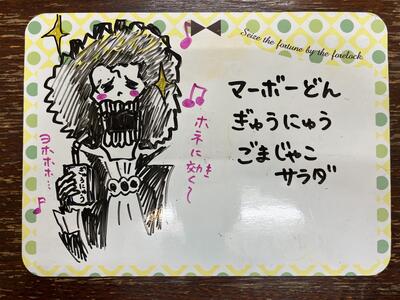 Seize the fortune by the forelock.
マーボーどん
ぎゅうにゅう
ごまじゃこ
サラダ
ホネに効く〜
き
ヨホホホ…
ぎゅうにゅう